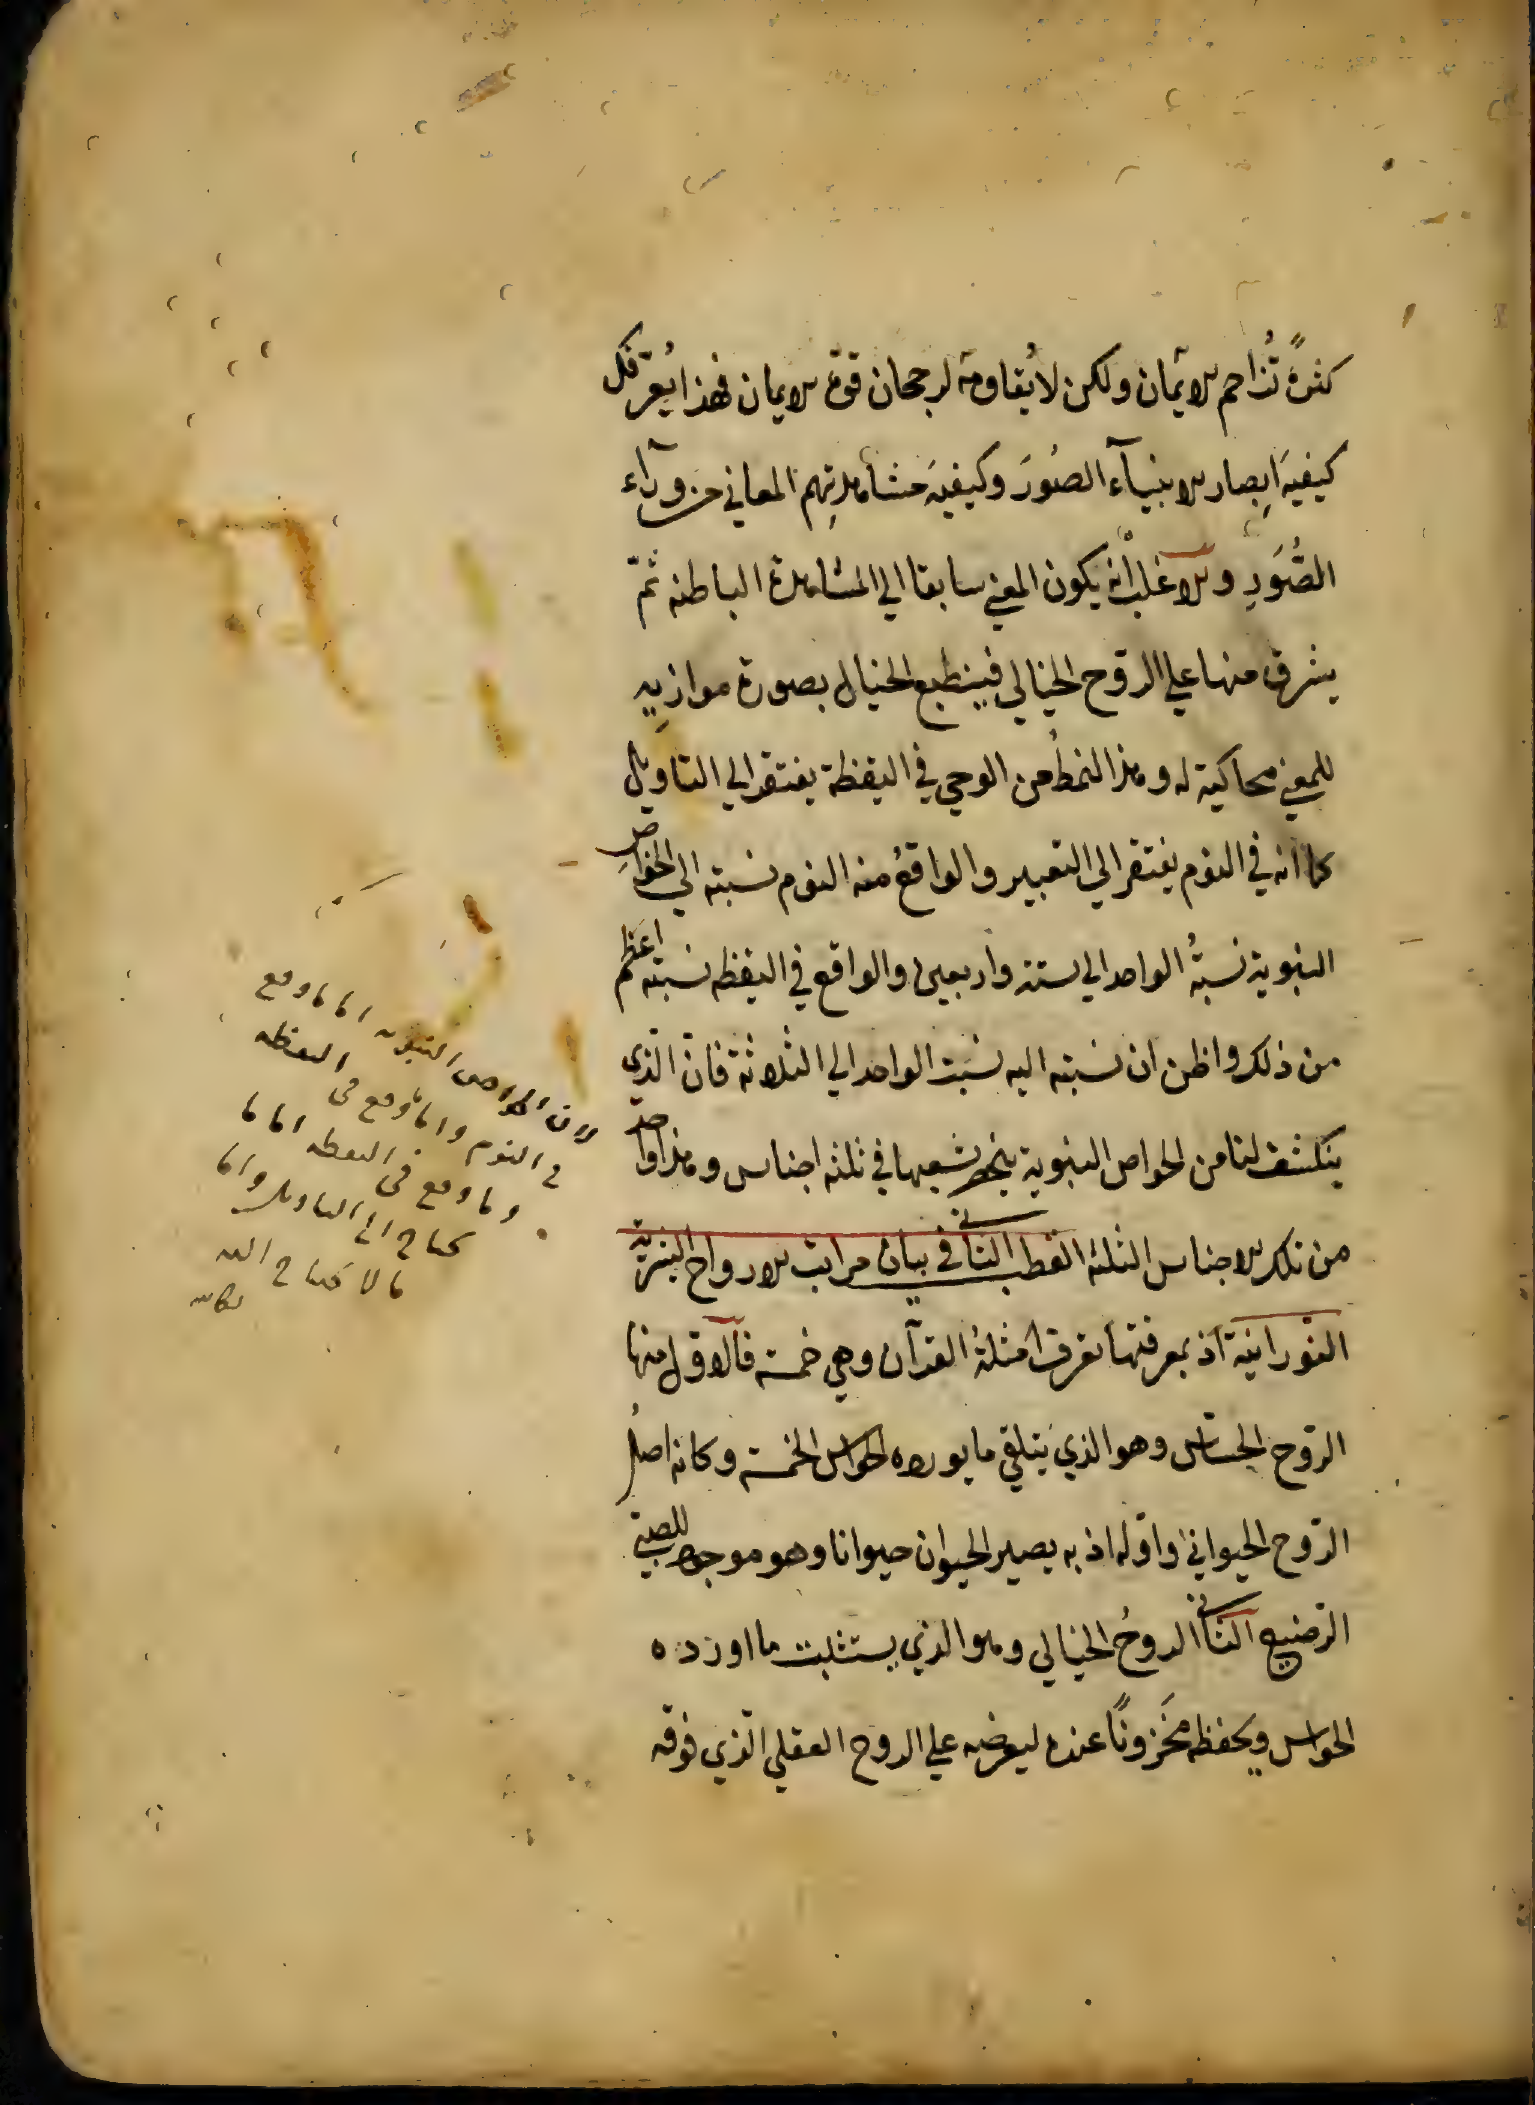 كثرةً تُزاحم الايمان ولكن لا يُقاومه لرجحان قوة الايمان فهذا يُعرّفك
كيفيةَ ابصار الانبيآء الصُورَ وكيفيةَ مشاهدتِهم المعاني من ورآء
الصُّوَرِ والاغلب أنه يكون المعنى سابقا الي المشاهدة الباطنه ثمّ
يشرق منها علي الروح الخيالي فينطبع الخيال بصورة موازيه
للمعنى محاكية له وهذا النمطُ من الوحي في اليقظة يفتقر الي التاويل
كما انه في النوم يفتقر الي التعبير والواقعُ منه النوم نسبته الي الخواص
النبوية نسبةُ الواحد الي ستة واربعين والواقع في اليقظه نسبته اعظم
من ذلك واظن ان نسبته اليه نسبت الواحد الي الثلاثة فانّ الّذي
ينكشف لنا من الخواص النبوية ينحصر شعبها في ثلثه اجناس وهذا واحد
من تلك الاجناس الثلثه القطب الثاني في بيان مراتب الارواح البشرية
النورانية اذ بمعرفتها تعرف امثلة القرآن وهي خمسه فالاوّل منها
الرّوح الحسّاس وهو الذي يتلقي ما يورده الحواس الخمسه وكانه اصلُ
الرّوح الحيواني واوّله اذ به يصير الحيوان حيوانا وهو موجود للصبّى
الرّضيع الثاني الروحُ الخيالي وهو الذي يستثبت ما اورده
الحواس ويحفظه مَخزونًا عنده ليعرضه علي الروح العقلي الّذي فوقه
لان الخواص النبويه اما ما وقع
في النوم واما ما وقع في اليقظه
وما وقع في اليقظه اما ما
يحتاج الى التاويل واما
ما لا يحتاج اليه